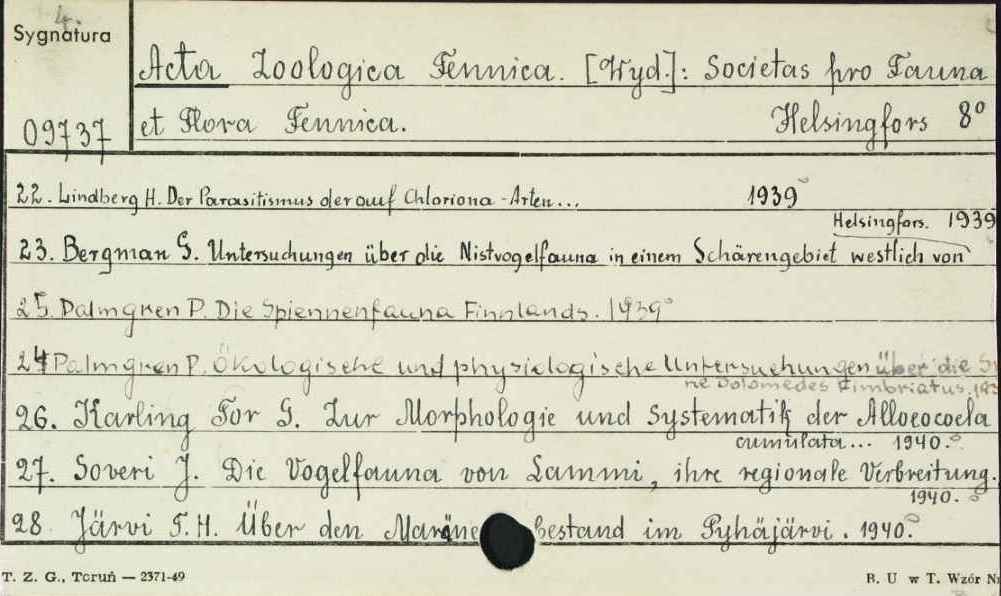 4.
Sygnatura
09737
Acta Zoologica Fennica. [Wyd.]: Societas pro Fauna
et Flora Fennica. Helsingfors 8°
22. Lindberg H. Der Parasitismus der auf Chloriona-Arten... 1939
Helsingfors. 1939
23. Bergman G. Untersuchungen über die Nistvogelfauna in einem Schärengebiet westlich von
25. Palmgren P. Die Spiennenfauna Finnlands. 1939
24 Palmgren P. Ökologische und physiologische Untersuchungen über die
ne Dolomedes Fimbriatus. 193
26. Karling Tor G. Zur Morphologie und Systematik der Alloeocoela
cumulata... 1940.
27. Soveri J. Die Vogelfauna von Lammi, ihre regionale Verbreitung.
1940.
28 Järvi T.H. Über den Maränenbestand im Pyhäjärvi. 1940.
T. Z. G., Toruń — 2371-49
B. U w T. Wzór